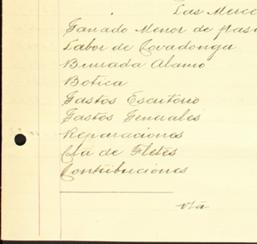 Las
Ganado Menor de
Labor de Covadonga
Bensada Alamo
Botica
Gastos Escritorio
Gastos Generales
Reparaciones
Cta de Fletes
Contribuciones
vta